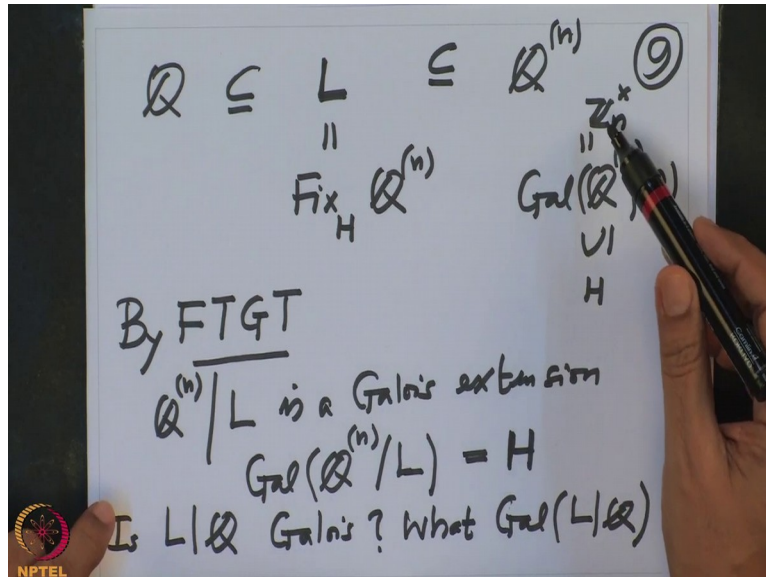 Q ⊆ L ⊆ Q^(n) ⑨
Z_n^×
|| ||
Fix_H Q^(n) Gal(Q
∪|
H
By FTGT
Q^(n) | L is a Galois extension
Gal(Q^(n)/L) = H
Is L|Q Galois? What Gal(L|Q)
NPTEL